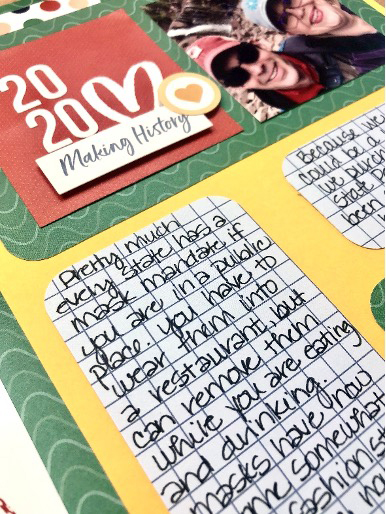 20
20
Making History
Because we
could be a
we purc
state pa
been
Pretty much
every state has a
mask mandate if
you are in a public
place. you have to
wear them into
a restaurant, but
can remove them
while you are eating
and drinking.
masks have now
ome somewhat
fashionist